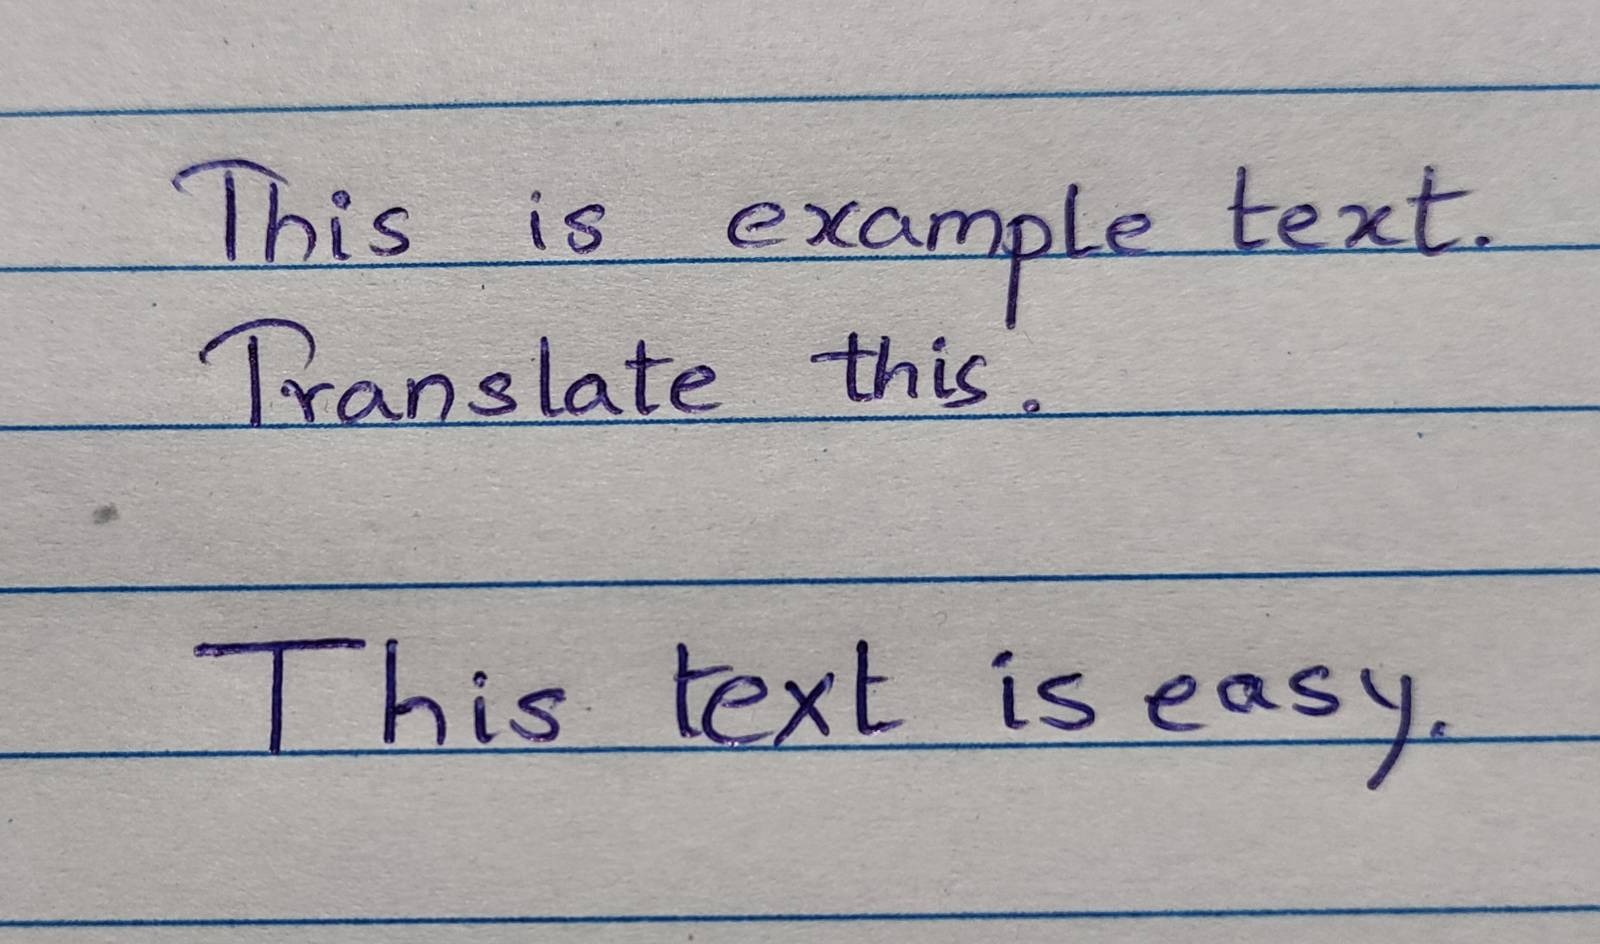 This is example text.
Translate this.
This text is easy.